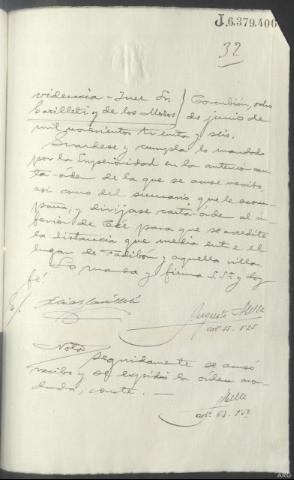 J.6.379.406
32
videncia - Juez Sr. } Corcubión, ocho
Carilleti y de los Mozos } de junio de
mil novecientos treinta y seis.
Guardese y cumpla lo mandado
por la Superioridad en la anterior car
ta-orden de la que se acuse recibo,
asi como del sumario que le acom
paña, y dirijase carta-orden al in
ferior de Cée para que se acredite
la distancia que media entre el
lugar de y aquella villa
Lo manda y firma S.Sª y doy
fé
E/
Augusto
artº 55. 1.50
Nota
Seguidamente se acusó
recibo y se expidió la orden man
dada, conste. —
artº 63. 1.50